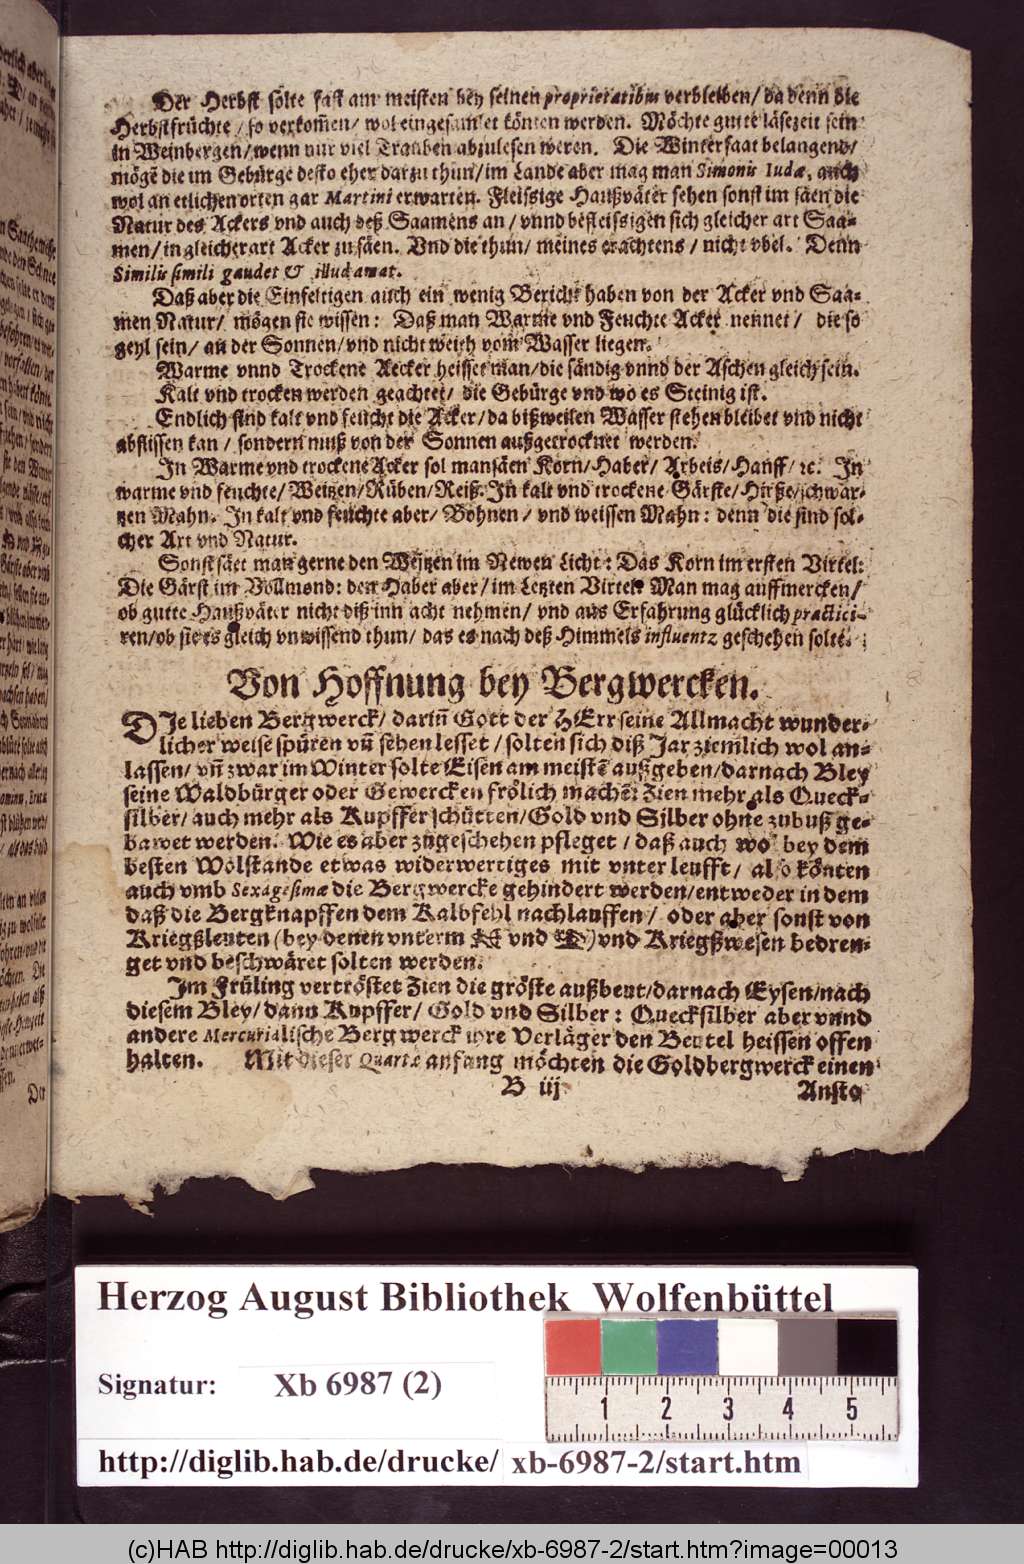 Der Herbst solte fast am meisten bey seinen proprietatibus verbleiben/ da denn die
Herbstfrüchte/ so verkom̃en/ wol eingesamlet könten werden. Möchte gutte läsezeit sein
in Weinbergen/ wenn nur viel Trauben abzulesen weren. Die Wintersaat belangend/
mögẽ die im Gebürge desto eher darzu thun/ im Lande aber mag man Simonis Iudæ, auch
wol an etlichen orten gar Martini erwarten. Fleissige Haußväter sehen sonst im säen die
Natur des Ackers vnd auch deß Saamens an/ vnnd befleissigen sich gleicher art Saa-
men/ in gleicher art Acker zu säen. Vnd die thun/ meines erachtens/ nicht vbel. Denn
Similis simili gaudet & illud amat.
Daß aber die Einfeltigen auch ein wenig Bericht haben von der Acker vnd Saa-
men Natur/ mögen sie wissen: Daß man Warme vnd Feuchte Acker nennet/ die so
geyl sein/ an der Sonnen/ vnd nicht weith vom Wasser liegen.
Warme vnnd Trockene Aecker heisset man/ die sändig vnnd der Aschen gleich sein.
Kalt vnd trocken werden geachtet/ die Gebürge vnd wo es Steinig ist.
Endlich sind kalt vnd feucht die Acker/ da bißweilen Wasser stehen bleibet vnd nicht
abflissen kan/ sondern muß von der Sonnen außgetrocknet werden.
In Warme vnd trockene Acker sol man säen Korn/ Haber/ Arbeis/ Hanff/ ꝛc. In
warme vnd feuchte/ Weitzen/ Rüben/ Reiß. In kalt vnd trockene Gärste/ Hirße/ schwar-
tzen Mahn. In kalt vnd feuchte aber/ Bohnen/ vnd weissen Mahn: denn die sind sol-
cher Art vnd Natur.
Sonst säet man gerne den Weytzen im Newen Licht: Das Korn im ersten Virtel:
Die Gärst im Vollmond: den Haber aber/ im Letzten Virtel. Man mag auffmercken/
ob gutte Haußväter nicht diß inn acht nehmen/ vnd aus Erfahrung glücklich practici-
ren/ ob sie es gleich vnwissend thun/ das es nach deß Himmels influentz geschehen solte.
Von Hoffnung bey Bergwercken.
DIe lieben Bergwerck/ darin̄ Gott der HErr seine Allmacht wunder-
licher weise spüren vn̄ sehen lesset/ solten sich diß Jar ziemlich wol an-
lassen/ vn̄ zwar im Winter solte Eisen am meistẽ außgeben/ darnach Bley
seine Waldbürger oder Gewercken frölich machẽ: Zien mehr als Queck-
silber/ auch mehr als Kupffer schütten/ Gold vnd Silber ohne zubuß ge-
bawet werden. Wie es aber zugeschehen pfleget/ daß auch wol bey dem
besten Wolstande etwas widerwertiges mit vnterleufft/ also könten
auch vmb Sexagesimæ die Bergwercke gehindert werden/ entweder in dem
daß die Bergknapffen dem Kalbfehl nachlauffen/ oder aber sonst von
Kriegßleuten (bey denen vnterm vnd ) vnd Kriegßwesen bedren-
get vnd beschwäret solten werden.
Im Früling vertröstet Zien die gröste außbeut/ darnach Eysen/ nach
diesem Bley/ dann Kupffer/ Gold vnd Silber: Quecksilber aber vnnd
andere Mercurialische Bergwerck ihre Verläger den Beutel heissen offen
halten. Mit dieser Quartæ anfang möchten die Goldbergwerck einen
B iij
Ansto
Herzog August Bibliothek Wolfenbüttel
Signatur: Xb 6987 (2)
1 2 3 4 5
http://diglib.hab.de/drucke/ xb-6987-2/start.htm
(c)HAB http://diglib.hab.de/drucke/xb-6987-2/start.htm?image=00013